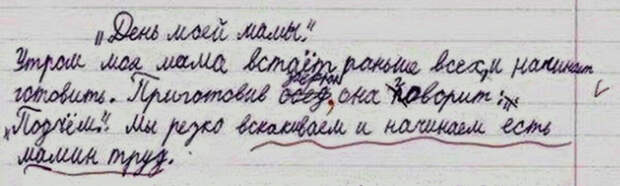 „День моей мамы."
Утром моя мама встаёт раньше всех, и начинает
готовить. Приготовив обед, она говорит:
„Подъём". Мы резко вскакиваем и начинаем есть
мамин труд.